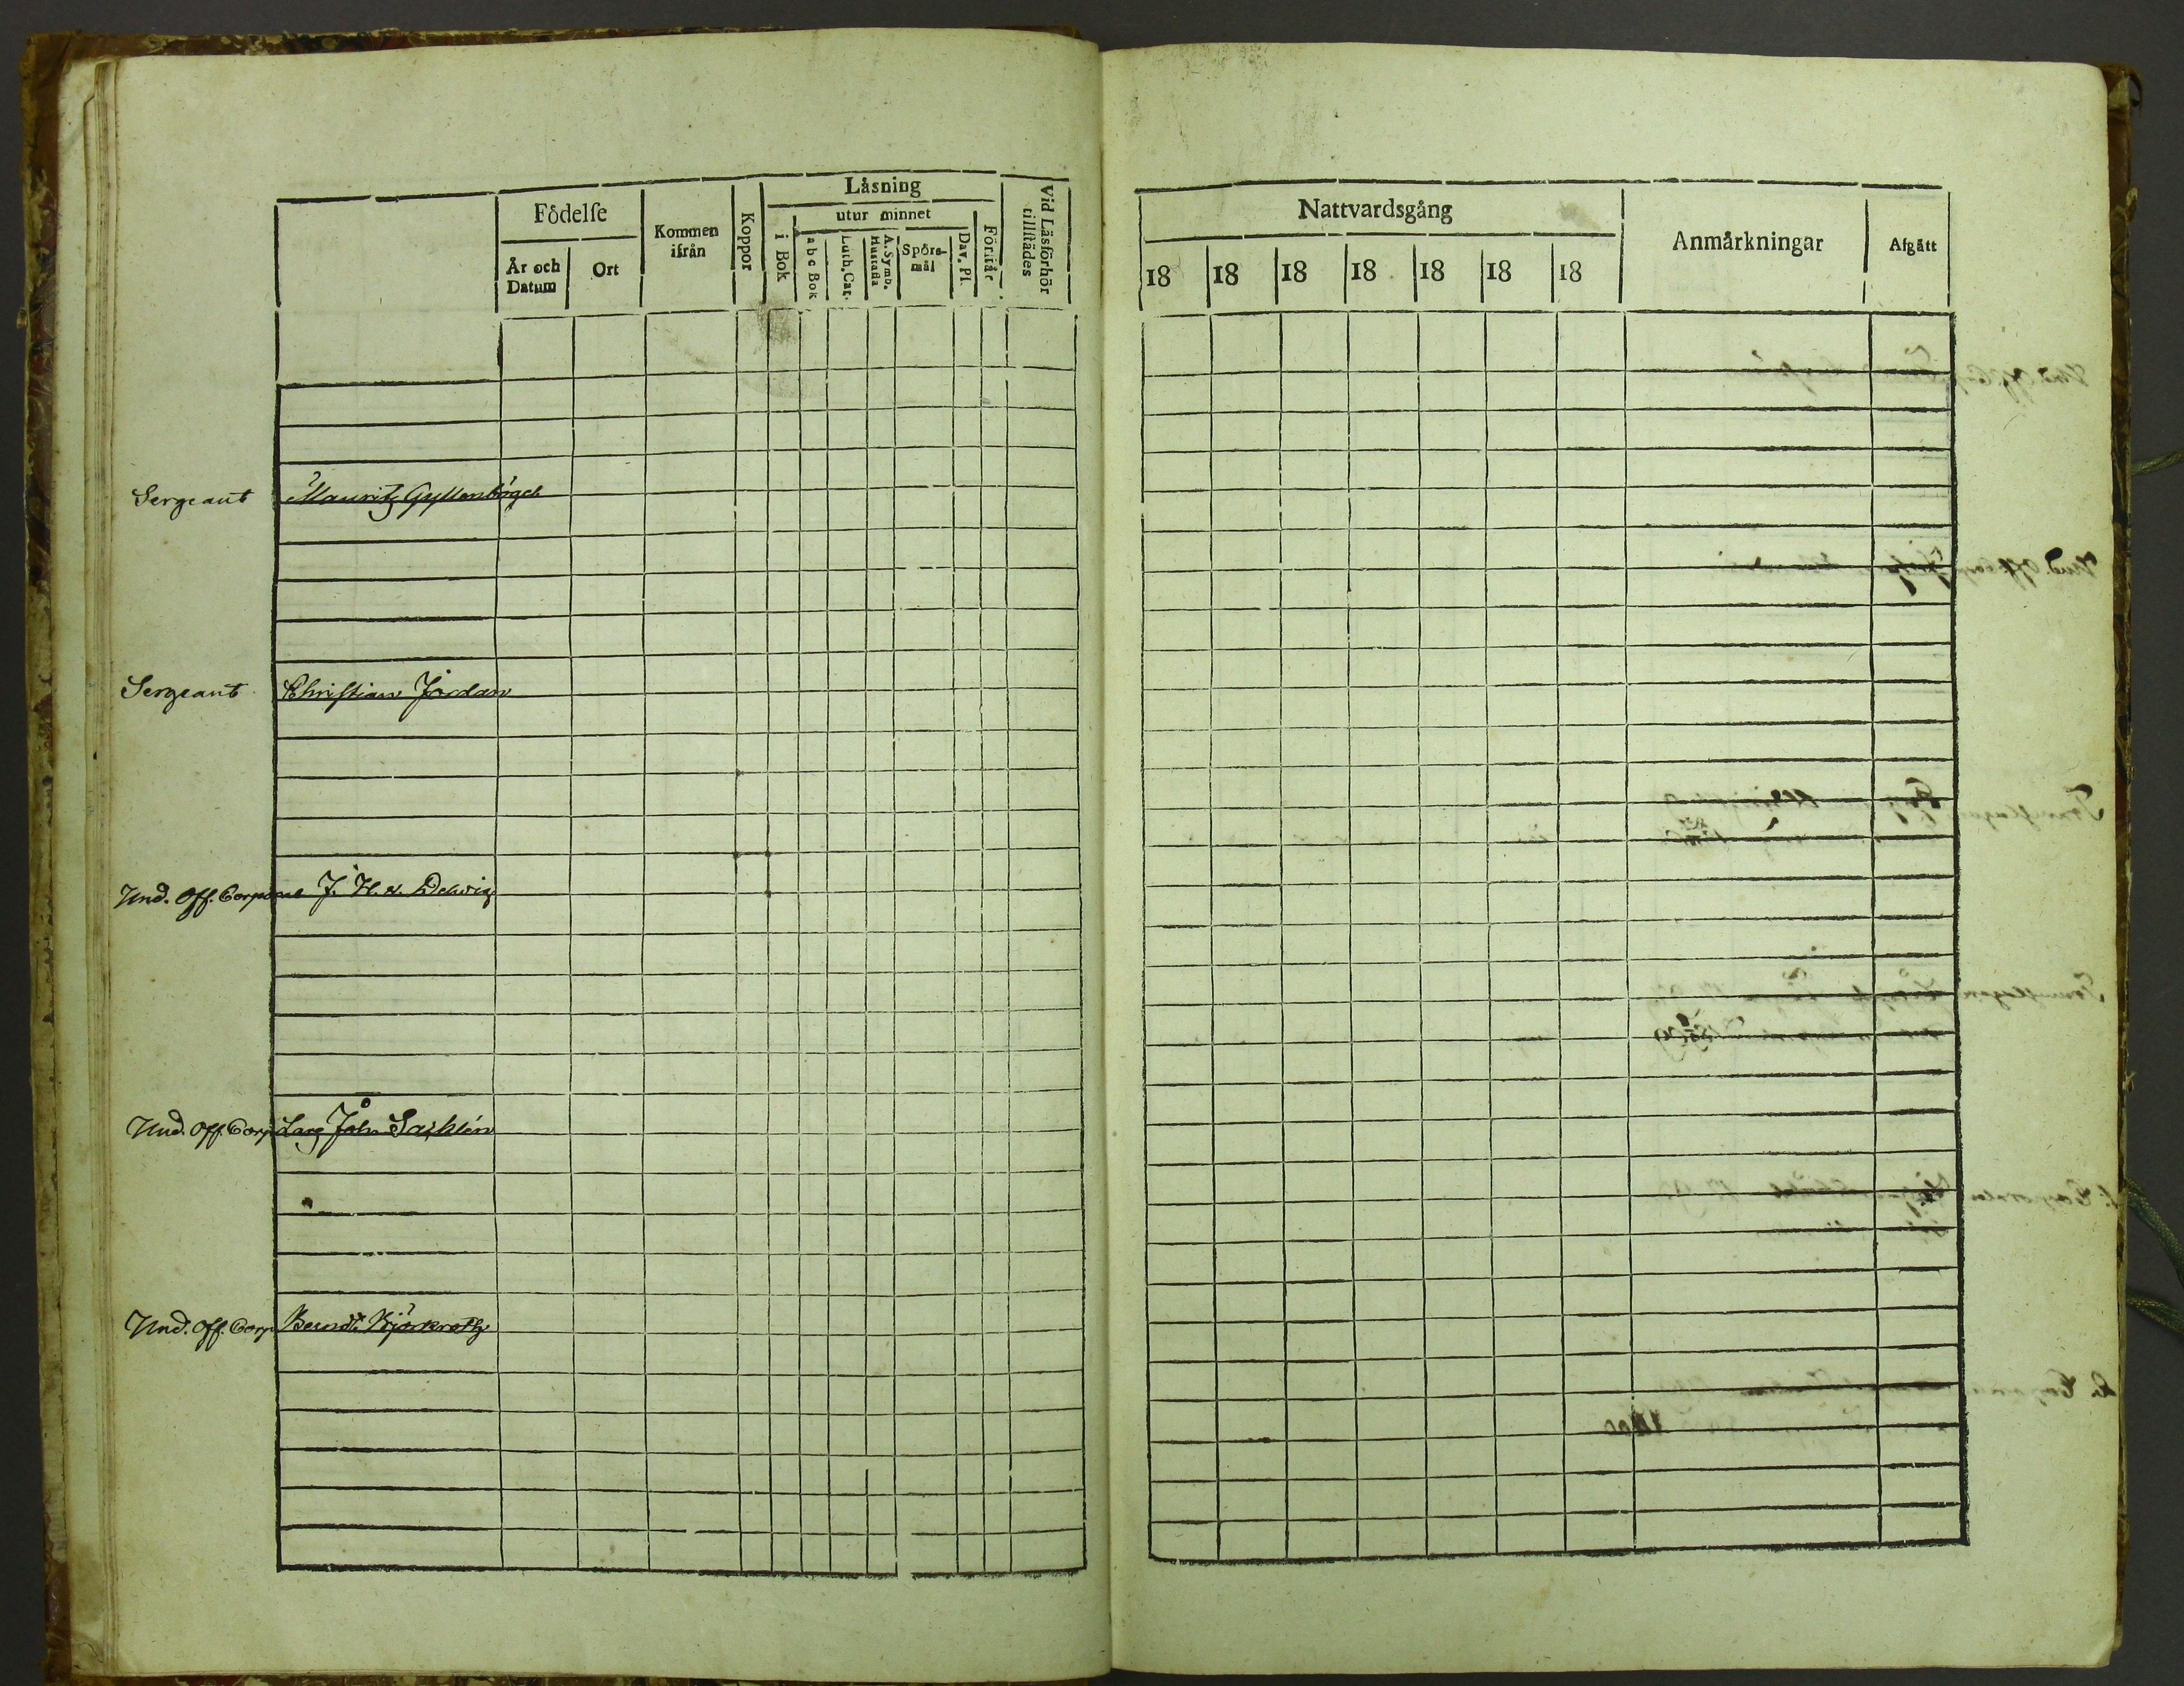 Födelse
År och Datum
Ort
Kommen ifrån
Koppor
Läsning
i Bok
utur minnet
a b c Bok
Luth. Cat.
A. Symb. Hustafla
Spörsmål
Dav. Pl.
Förstår
Vid Läsförhör tillstädes
Nattvardsgång
18 18 18 18 18 18 18
Anmärkningar
Afgått
Sergeant Mauritz Gyllenbögel
Sergeant Christian Jordan
Und. Off. Corporal J. H. v. Delwig
Und. Off. Corp Lars Joh
Und. Off. Corp Berndt